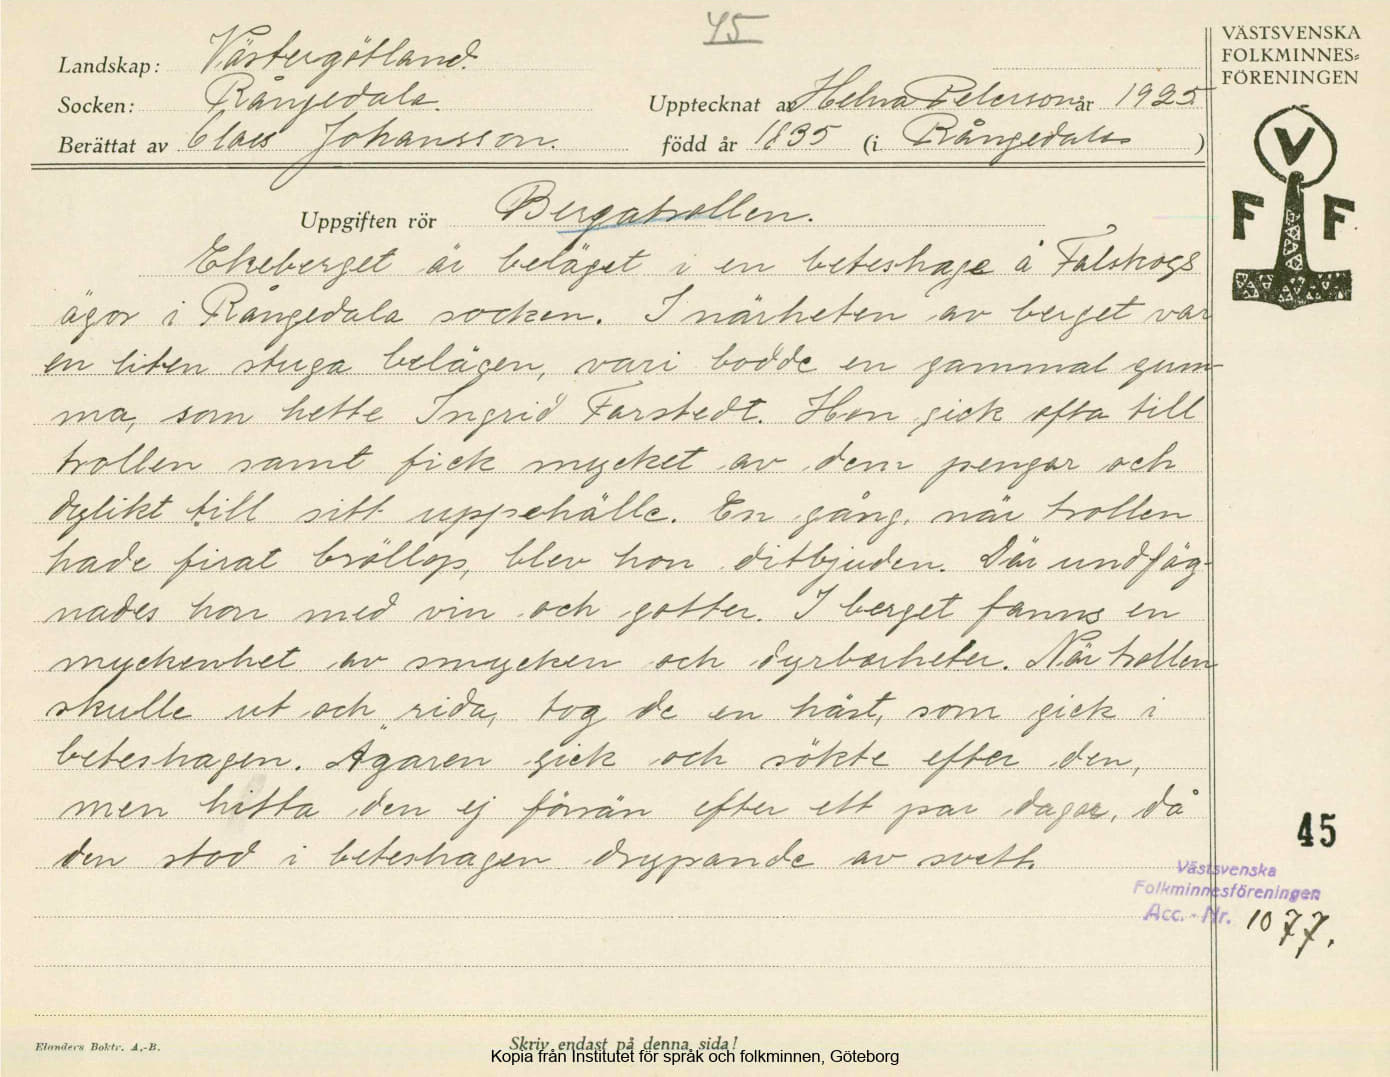 45
Landskap: Västergötland.
Socken: Rångedala.
Upptecknat av Helna Peterson år 1925
Berättat av Claes Johansson.
född år 1835 (i Rångedala )
VÄSTSVENSKA
FOLKMINNES-
FÖRENINGEN
V
F F
Uppgiften rör Bergatrollen.
Ekeberget är beläget i en beteshage å Falskogs
ägor i Rångedala socken. I närheten av berget var
en liten stuga belägen, vari bodde en gammal gum-
ma, som hette Ingrid Farstedt. Hon gick ofta till
trollen samt fick mycket av dem pengar och
dylikt till sitt uppehälle. En gång, när trollen
hade firat bröllop, blev hon ditbjuden. Där undfäg-
nades hon med vin och gotter. I berget fanns en
myckenhet av smycken och dyrbarheter. När trollen
skulle ut och rida, tog de en häst, som gick i
beteshagen. Ägaren gick och sökte efter den,
men hitta den ej förrän efter ett par dagar, då
den stod i beteshagen drypande av svett.
45
Västsvenska
Folkminnesföreningen
Acc. - Nr. 1077.
Elanders Boktr. A.-B.
Skriv endast på denna sida!
Kopia från Institutet för språk och folkminnen, Göteborg